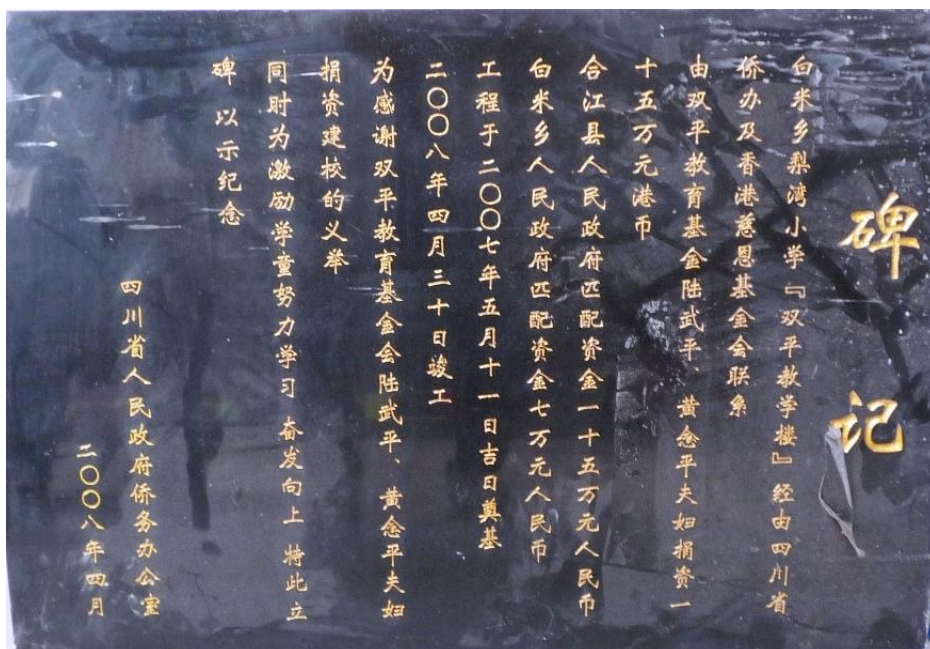 碑记
白米乡梨湾小学『双平教学楼』经由四川省
侨办及香港慈恩基金会联系
由双平教育基金陆武平、黄念平夫妇捐资一
十五万元港币
合江县人民政府匹配资金一十五万元人民币
白米乡人民政府匹配资金七万元人民币
工程于二〇〇七年五月十一日吉日奠基
二〇〇八年四月三十日竣工
为感谢双平教育基金会陆武平、黄念平夫妇
捐资建校的义举
同时为激励学童努力学习 奋发向上 特此立
碑 以示纪念
四川省人民政府侨务办公室
二〇〇八年四月